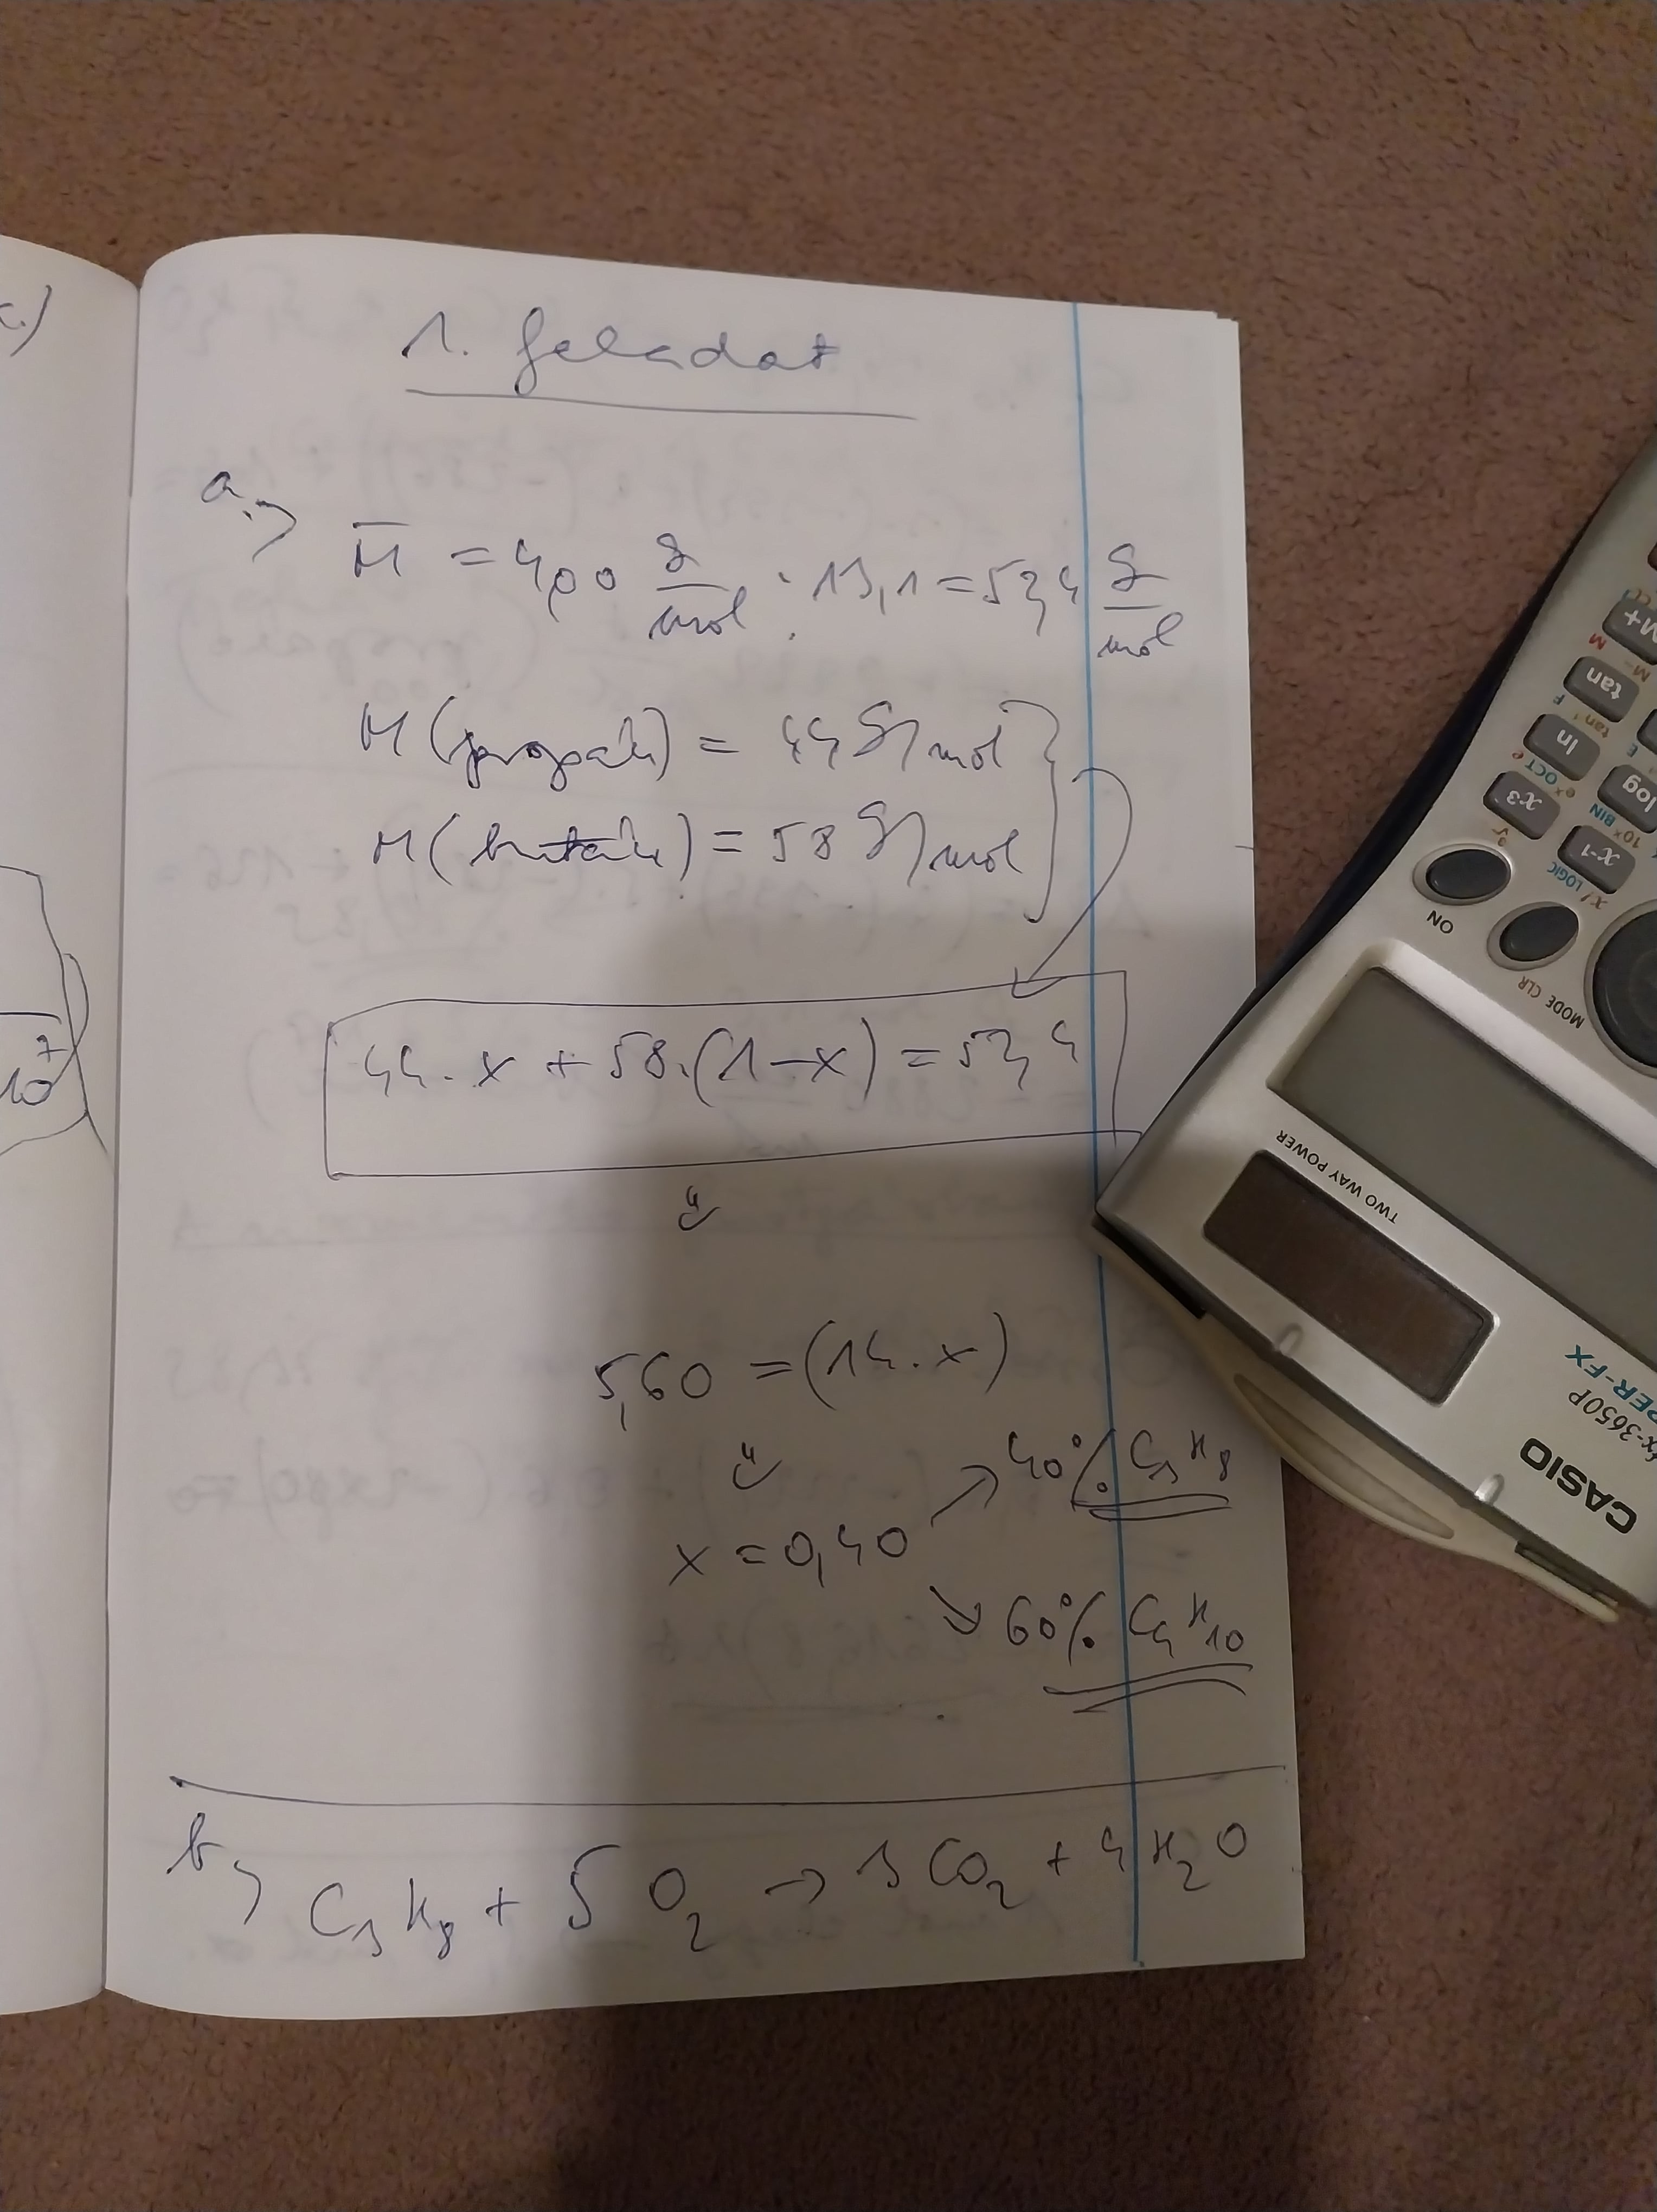 c.)
10⁷
1. feladat
a.)
M̄ = 4,00 g/mol · 13,1 = 52,4 g/mol
M(propán) = 44 g/mol
M(bután) = 58 g/mol
44·x + 58·(1-x) = 52,4
5,60 = (14·x)
x = 0,40
40% C₃H₈
60% C₄H₁₀
b)
C₃H₈ + 5 O₂ → 3 CO₂ + 4 H₂O
M+
M
M-
tan
F
tan⁻¹
E
ln
log
OCT e
eˣ
BIN
10ˣ
x³
³√
x-1
x!
LOGIC
ON
MODE CLR
TWO WAY POWER
fx-3650P
PER-FX
CASIO